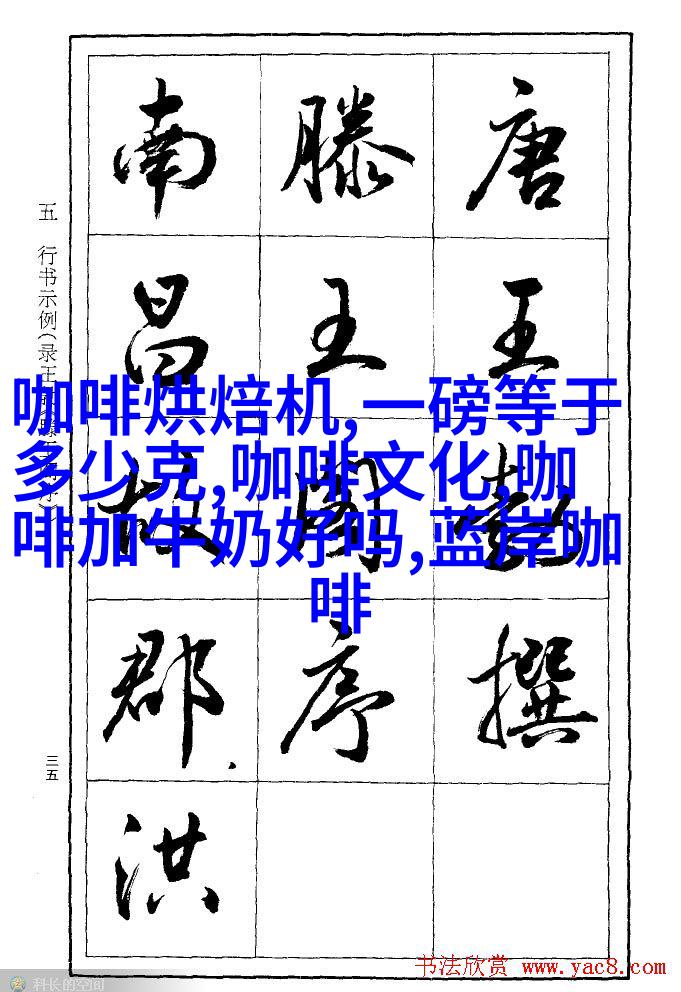 咖啡烘焙机,一磅等于
多少克,咖啡文化,咖
啡加牛奶好吗,蓝岸咖
啡
唐王勃撰
滕王阁序
南昌故郡.洪
五 行书示例(录王
三五
书法欣赏 www.yac8.com
科长的空间